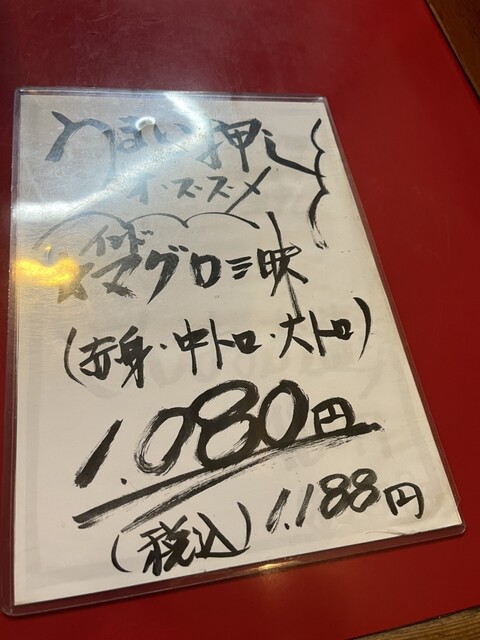 うまい押し
オススメ
インド
マグロ三昧
(赤身・中トロ・大トロ)
1.080円
(税込)1.188円